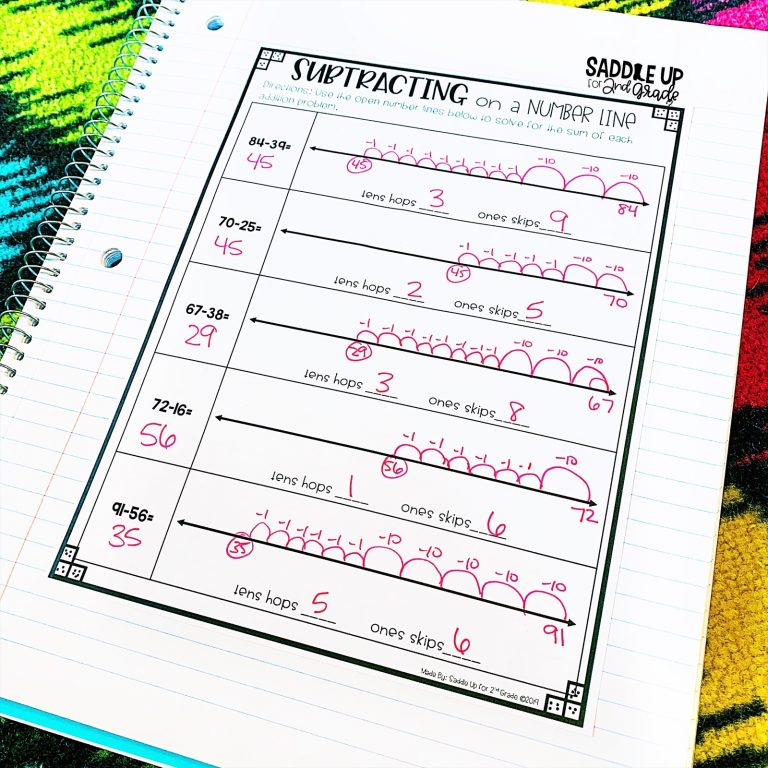 SADDLE UP
for 2nd Grade
SUBTRACTING on a NUMBER LINE
Directions: Use the open number lines below to solve for the sum of each
addition problem.
84-39=
45
-1 -1 -1 -1 -1 -1 -1 -1 -1 -10 -10 -10
45
84
tens hops 3 ones skips 9
70-25=
45
-1 -1 -1 -1 -1 -10 -10
45
70
tens hops 2 ones skips 5
67-38=
29
-1 -1 -1 -1 -1 -1 -1 -1 -10 -10 -10
29
67
tens hops 3 ones skips 8
72-16=
56
-1 -1 -1 -1 -1 -1 -10
56
72
tens hops 1 ones skips 6
91-56=
35
-1 -1 -1 -1 -1 -1 -10 -10 -10 -10 -10
35
91
tens hops 5 ones skips 6
Made By: Saddle Up for 2nd Grade ©2019